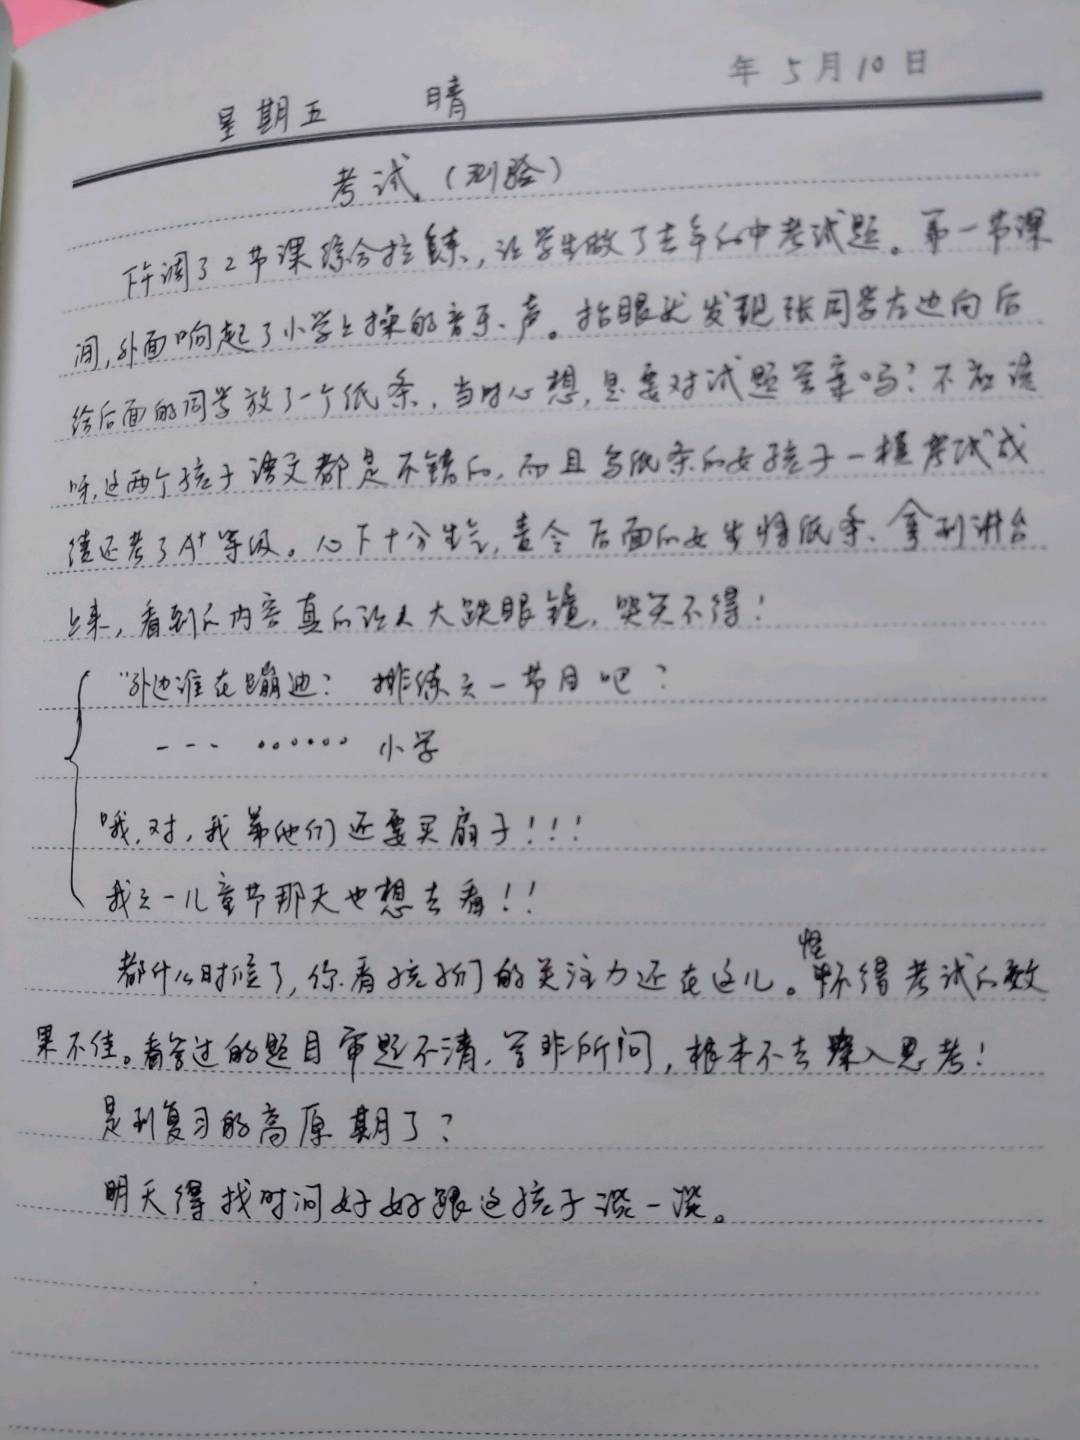 年5月10日
星期五 晴
考试(测验)
下午调了2节课综合拉练,让学生做了去年的中考试题。第一节课
间,外面响起了小学上操的音乐、声。抬眼就发现张同学左边向后
给后面的同学放了一个纸条,当时心想,是要对试题答案吗?不应该
呀,这两个孩子语文都是不错的,而且写纸条的女孩子一模考试成
绩还考了A+等级。心下十分生气,责令后面的女生将纸条、拿到讲台
上来,看到的内容真的让人大跌眼镜,哭笑不得!
"外边谁在蹦迪? 排练六一节目吧?
--- ...... 小学
哦,对,我弟他们还要买扇子!!!
我六一儿童节那天也想去看!!
都什么时候了,你看孩子们的关注力还在这儿。怪不得考试的效
果不佳。看答过的题目审题不清,答非所问,根本不去深入思考!
是到复习的高原期了?
明天得找时间好好跟这孩子谈一谈。